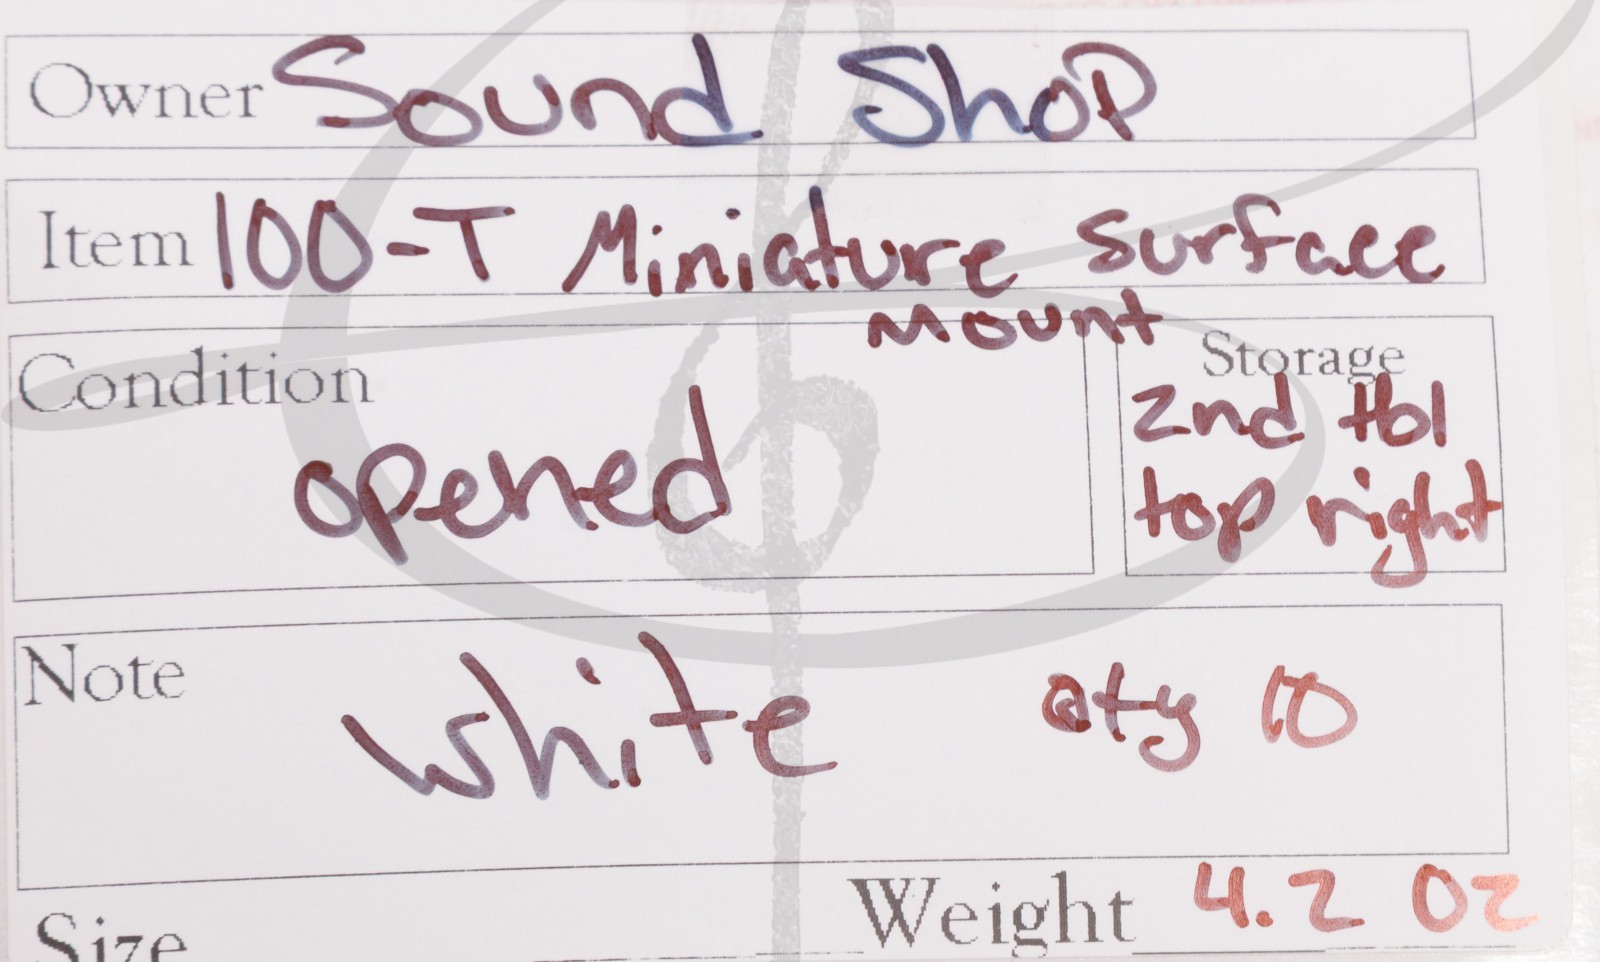 Owner Sound Shop
Item 100-T Miniature Surface
Mount
Condition
opened
Storage
2nd tbl
top right
Note
white qty 10
Size
Weight 4.2 oz